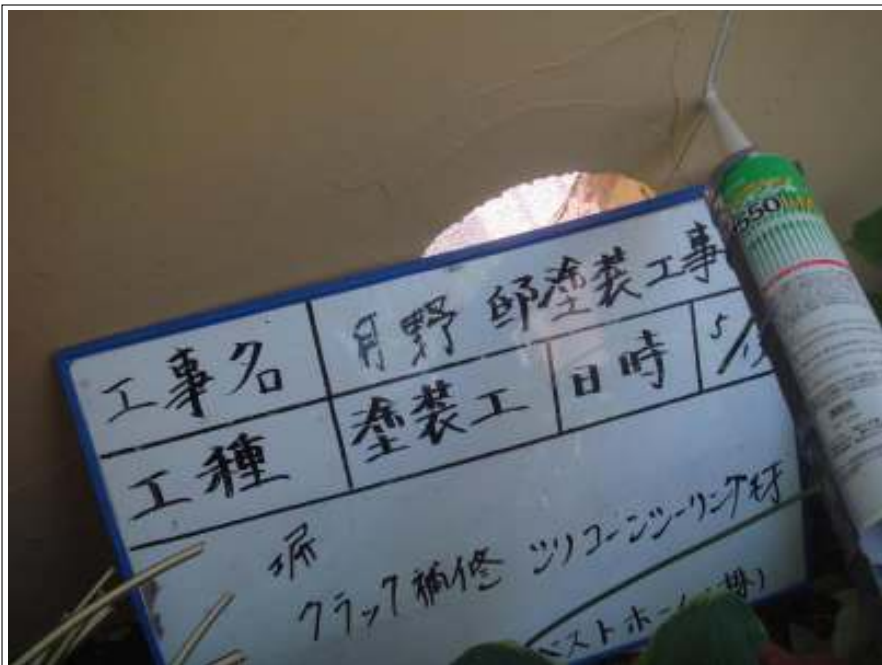 工事名 月野邸塗装工事
工種 塗装工 日時 5/1
塀
クラック補修 シリコーンシーリング材
ベストホーム(株)
550